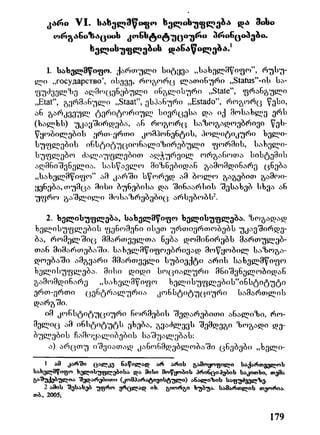 კარი VI. სახელმწიფო ხელისუფლება და მისი
ორგანიზაციის კონსტიტუციური პრინციპები.
ხელისუფლების დანაწილება.¹
1. სახელმწიფო. ქართული სიტყვა „სახელმწიფო", რუსუ-
ლი „государство", ისევე, როგორც ლათინური „Status"-ის სა-
ფუძველზე აღმოცენებული ინგლისური „State", ფრანგული
„Etat", გერმანული „Staat", ესპანური „Estado", როგორც წესი,
ან გარკვეულ ტერიტორიულ სივრცესა და იქ მოსახლე ერს
(ხალხს) უკავშირდება, ან როგორც საზოგადოებრივი წეს-
წყობილების ერთ-ერთი კომპონენტის, პოლიტიკური ხელი-
სუფლების ინსტიტუციონალიზირებული ფორმის, სახელი-
სუფლებო ძალაუფლებით აღჭურვილ ორგანოთა სისტემის
აღმნიშვნელია. სასწავლო მიზნებიდან გამომდინარე ცნება
„სახელმწიფო" ამ კარში სწორედ ამ ბოლო გაგებით გამოი-
ყენება, თუმცა მისი ბუნებისა და შინაარსის შესახებ სხვა ან
უფრო გაშლილი მოსაზრებებიც არსებობს².
2. ხელისუფლება, სახელმწიფო ხელისუფლება. ზოგადად
ხელისუფლების ფენომენი ისეთ ურთიერთობებს უკავშირდე-
ბა, რომელშიც მმართველთა ნება დომინირებს მართულებ-
თან მიმართებაში. სახელმწიფოებრივად მოწყობილ საზოგა-
დოებაში ამგვარი მმართველი სუბიექტი არის სახელმწიფო
ხელისუფლება. მისი დიდი სოციალური მნიშვნელობიდან
გამომდინარე „სახელმწიფო ხელისუფლების"ინსტიტუტი
ერთ-ერთი ცენტრალურია კონსტიტუციური სამართლის
დარგში.
იმ კონსტიტუციური ნორმების შედარებითი ანალიზი, რო-
მელიც ამ ინსტიტუტს ეხება, გვაძლევს შემდეგი ზოგადი დე-
ბულების ჩამოყალიბების საშუალებას:
ა) არცთუ იშვიათად კანონმდებლობაში ცნებები „ხელი-
1 ამ კარში ცალკე ნაწილად არ არის გამოყოფილი საქართველოს
სახელმწიფო ხელისუფლებისა და მისი მოწყობის პრინციპების საკითხი, თემა
გაშუქებულია შედარებითი (კომპარატივისტული) ანალიზის საფუძველზე.
2 ამის შესახებ უფრო ვრცლად იხ. გიორგი ხუბუა. სამართლის თეორია.
თბ., 2005;
179